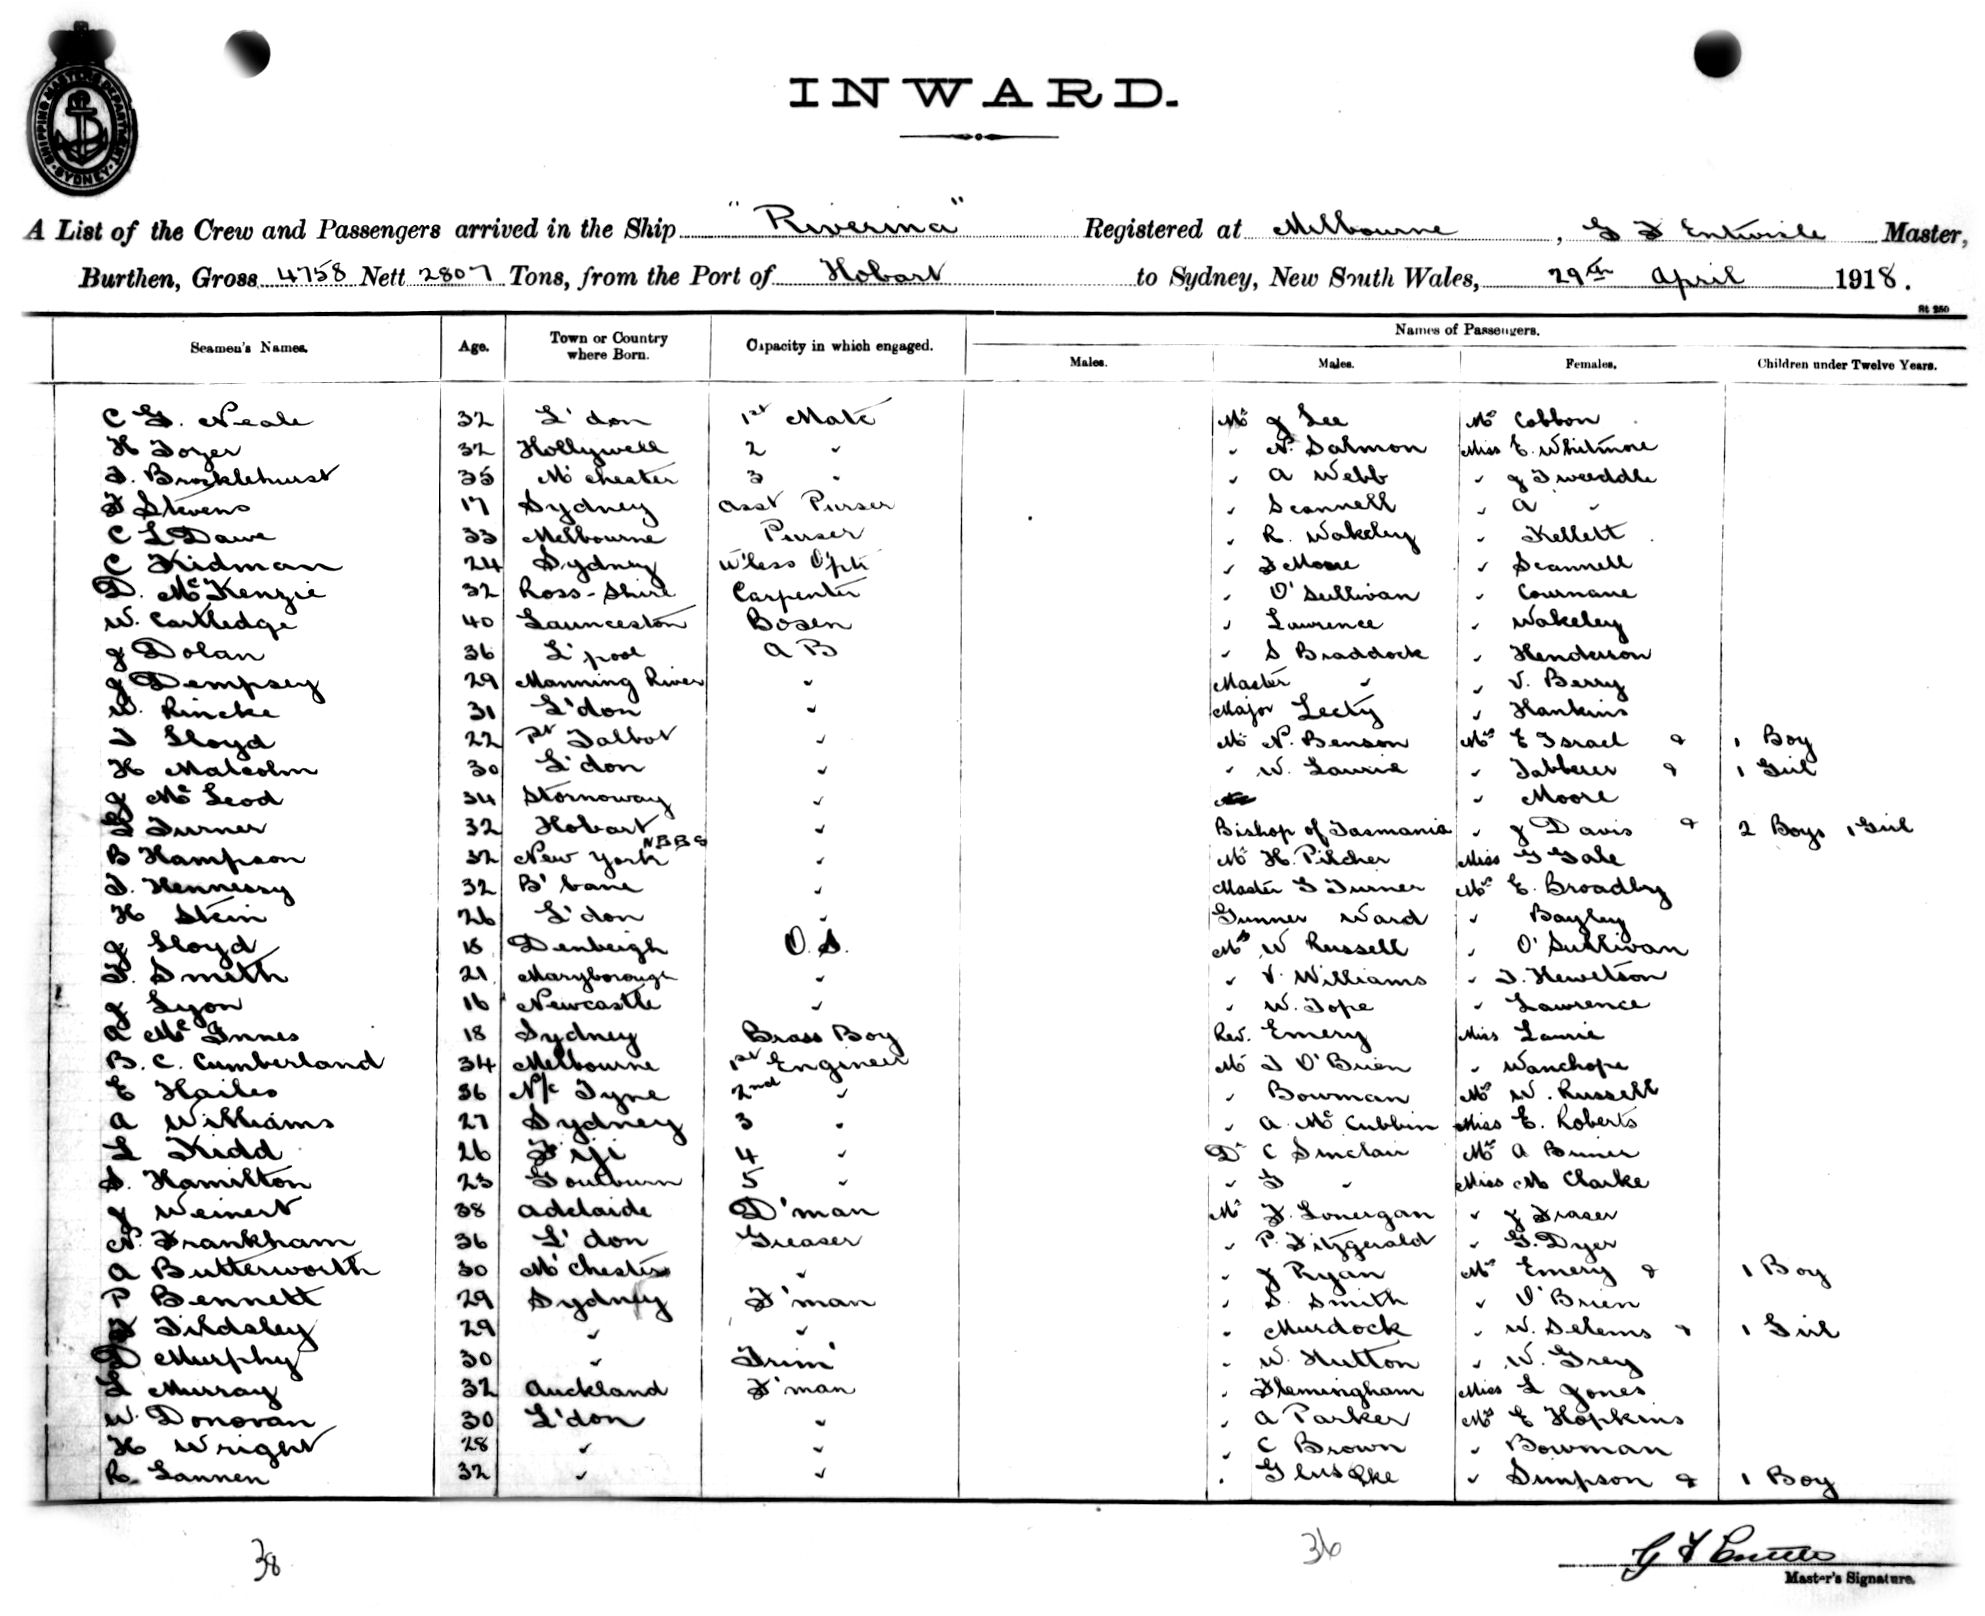 SHIPPING MASTER'S DEPARTMENT SYDNEY
INWARD.
A List of the Crew and Passengers arrived in the Ship "Riverina" Registered at Melbourne, G F Entwisle Master,
Burthen, Gross 4758 Nett 2807 Tons, from the Port of Hobart to Sydney, New South Wales, 29th April 1918.
Rt 250
Names of Passengers.
Seamen's Names. Age. Town or Country where Born. Capacity in which engaged. Males. Males. Females. Children under Twelve Years.
C G. Neale 32 L'don 1st Mate Mr J Lee Mrs Cobbon
H Tozer 32 Hollywell 2 " " N. Salmon Miss E. Whitmore
J. Brocklehurst 35 M'chester 3 " " A Webb " J Tweeddle
F Stevens 17 Sydney Asst Purser " Scannell " A "
C L Dawe 33 Melbourne Purser " R. Wakeley " Kellett
C Kidman 24 Sydney W'less Op'tr " F Moore " Scannell
D. McKenzie 32 Ross-Shire Carpenter " O'Sullivan " Cournane
W. Cartledge 40 Launceston Bosen " Lawrence " Wakeley
J Dolan 36 L'pool A B " S Braddock " Henderson
J Dempsey 29 Manning River " Master " " V. Berry
W. Rincke 31 L'don " Major Lecty " Hankins
T Lloyd 22 Pt Talbot " Mr N. Benson Mrs E Israel & 1 Boy
H Malcolm 30 L'don " " W. Laurie " Tabberer & 1 Girl
J McLeod 34 Stornoway " " Moore
L Turner 32 Hobart " Bishop of Tasmania " J Davis & 2 Boys 1 Girl
B Hampson 32 New York NBBS " Mr H. Pilcher Miss G Gale
J. Hennessy 32 B'bane " Master G Turner Mrs E. Broadby
H Stein 26 L'don " Gunner Ward " Bayley
J Lloyd 18 Denbeigh O.S. Mr W Russell " O'Sullivan
F. Smith 21 Maryborough " " V. Williams " J. Hewetson
J Lyon 16 Newcastle " " W. Tope " Lawrence
A McInnes 18 Sydney Brass Boy Rev. Emery Miss Laurie
B. C. Cumberland 34 Melbourne 1st Engineer Mr J O'Brien " Wanchope
E Hailes 36 N/c Tyne 2nd " " Bowman Mrs W. Russell
A Williams 27 Sydney 3 " " A. McCubbin Miss E. Roberts
L Kidd 26 Fiji 4 " Dr C Sinclair Mrs A Bimer
S. Hamilton 23 Goulburn 5 " " G " Miss M Clarke
J Weinert 38 Adelaide D'man Mr F. Lonergan " J Fraser
N. Frankham 36 L'don Greaser " P. Fitzgerald " G. Dyer
A Butterworth 30 M'chester " " J Ryan Mrs Emery & 1 Boy
P Bennett 29 Sydney F'man " S. Smith " O'Brien
F Tildsley 29 " " " Murdock " W. Selems & 1 Girl
D Murphy 30 " Trim' " W. Hutton " W. Grey
L Murray 32 Auckland F'man " Flemingham Miss L Jones
W. Donovan 30 L'don " " A Parker Mrs E Hopkins
H Wright 28 " " " C Brown " Bowman
R. Lannen 32 " " " Simpson & 1 Boy
38 36
Master's Signature.